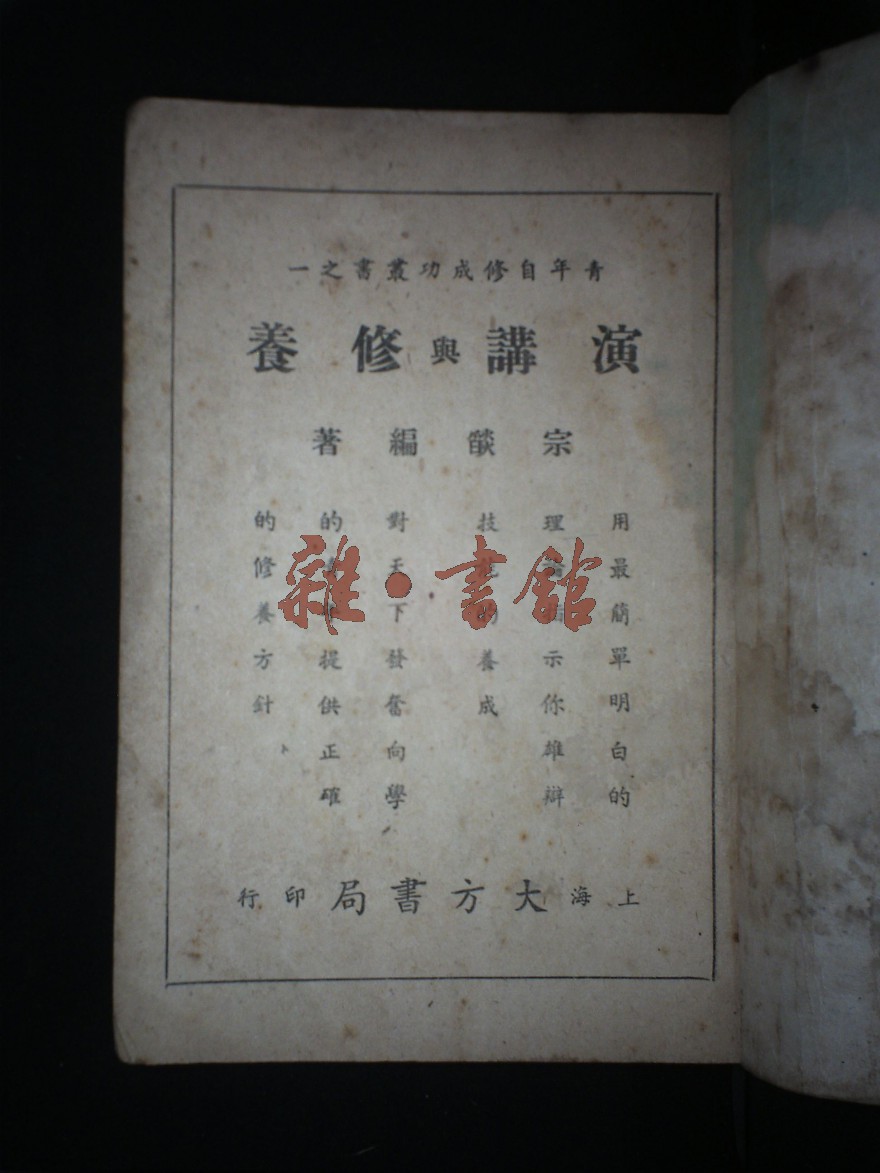 青年自修成功叢書之一
演講與修養
宗燄編著
用最簡單明白的
理 示你雄辯
技 養成
對天下發奮向學
的 提供正確
的修養方針
上海大方書局印行
雜·書館